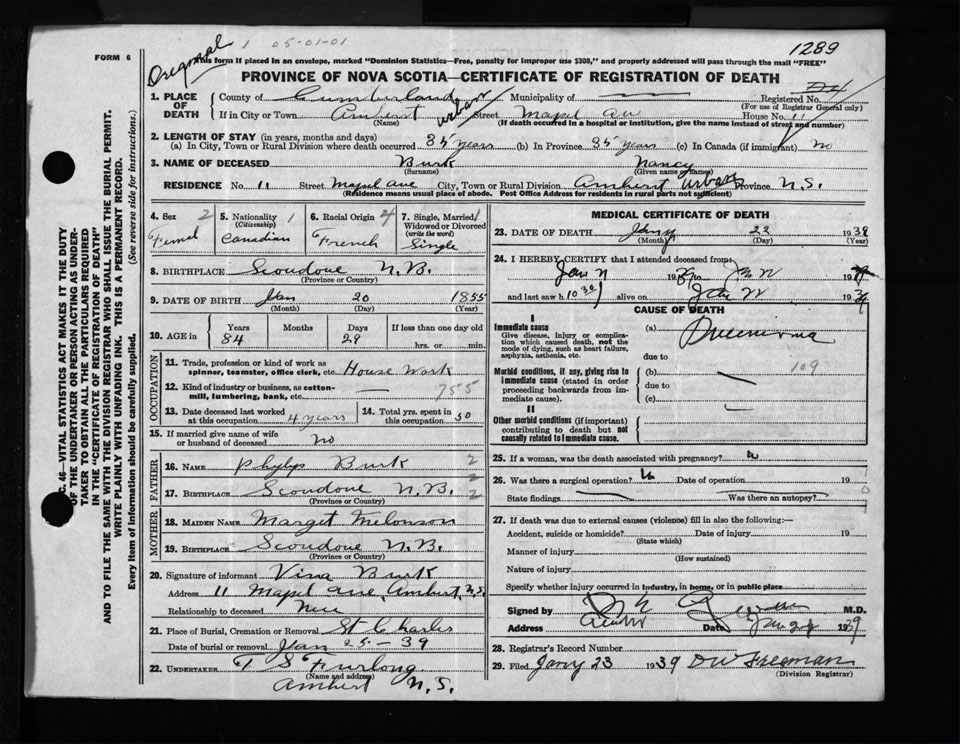 FORM 6
Original 1 05-01-01
1289
This form if placed in an envelope, marked "Dominion Statistics—Free, penalty for improper use $300," and properly addressed will pass through the mail "FREE"
PROVINCE OF NOVA SCOTIA—CERTIFICATE OF REGISTRATION OF DEATH
1. PLACE OF DEATH
County of Cumberland Municipality of Registered No.
(For use of Registrar General only)
If in City or Town Amherst urban Street Mapel Ave House No. 11
(Name) (If death occurred in a hospital or institution, give the name instead of street and number)
2. LENGTH OF STAY (in years, months and days)
(a) In City, Town or Rural Division where death occurred 85 years (b) In Province 85 years (c) In Canada (if immigrant) no
3. NAME OF DECEASED Burk Nancy
(Surname) (Given name or names)
RESIDENCE No. 11 Street Mapel ave City, Town or Rural Division Amherst urban Province N.S.
(Residence means usual place of abode. Post Office Address for residents in rural parts not sufficient)
4. Sex 2
Femal
5. Nationality 1
(Citizenship)
Canadian
6. Racial Origin 4
French
7. Single, Married 1
Widowed or Divorced
(write the word)
Single
8. BIRTHPLACE Scoudouc N.B.
(Province or Country)
9. DATE OF BIRTH Jan 20 1855
(Month) (Day) (Year)
10. AGE in Years Months Days If less than one day old
84 29 hrs. or min.
OCCUPATION
11. Trade, profession or kind of work as
spinner, teamster, office clerk, etc. House Work
12. Kind of industry or business, as cotton-
mill, lumbering, bank, etc. 755
13. Date deceased last worked
at this occupation 4 years
14. Total yrs. spent in
this occupation 50
15. If married give name of wife
or husband of deceased no
FATHER
16. NAME Phylip Burk 2
17. BIRTHPLACE Scoudouc N.B. 2
(Province or Country)
MOTHER
18. MAIDEN NAME Marget Melonson
19. BIRTHPLACE Scoudouc N.B.
(Province or Country)
20. Signature of informant Vina Burk
Address 11 Mapel ave, Amherst, N.S.
Relationship to deceased Niece
21. Place of Burial, Cremation or Removal St Charles
Date of burial or removal Jan 25 - 39
22. UNDERTAKER T S Furlong
(Name and address)
Amherst N.S.
MEDICAL CERTIFICATE OF DEATH
23. DATE OF DEATH Jany 22 1938
(Month) (Day) (Year)
24. I HEREBY CERTIFY that I attended deceased from:
Jan 19 39 to Jan 19
and last saw h alive on Jan 19 39
CAUSE OF DEATH
I
Immediate cause
Give disease, injury or complica-
tion which caused death, not the
mode of dying, such as heart failure,
asphyxia, asthenia, etc.
(a) Pneumonia
due to
Morbid conditions, if any, giving rise to
immediate cause (stated in order
proceeding backwards from im-
mediate cause).
(b) 109
due to
(c)
II
Other morbid conditions (if important)
contributing to death but not
causally related to immediate cause.
25. If a woman, was the death associated with pregnancy?
26. Was there a surgical operation? Date of operation 19
State findings Was there an autopsy?
27. If death was due to external causes (violence) fill in also the following:—
Accident, suicide or homicide? Date of injury 19
(State which)
Manner of injury
(How sustained)
Nature of injury
Specify whether injury occurred in industry, in home, or in public place
Signed by M.D.
Address Amherst Date Jan 39
28. Registrar's Record Number
29. Filed Jany 23 1939 D W Freeman
(Division Registrar)
C. 46—VITAL STATISTICS ACT MAKES IT THE DUTY
OF THE UNDERTAKER OR PERSON ACTING AS UNDER-
TAKER TO OBTAIN ALL THE PARTICULARS REQUIRED
IN THE "CERTIFICATE OF REGISTRATION OF DEATH"
AND TO FILE THE SAME WITH THE DIVISION REGISTRAR WHO SHALL ISSUE THE BURIAL PERMIT.
WRITE PLAINLY WITH UNFADING INK. THIS IS A PERMANENT RECORD.
Every item of information should be carefully supplied. (See reverse side for instructions.)